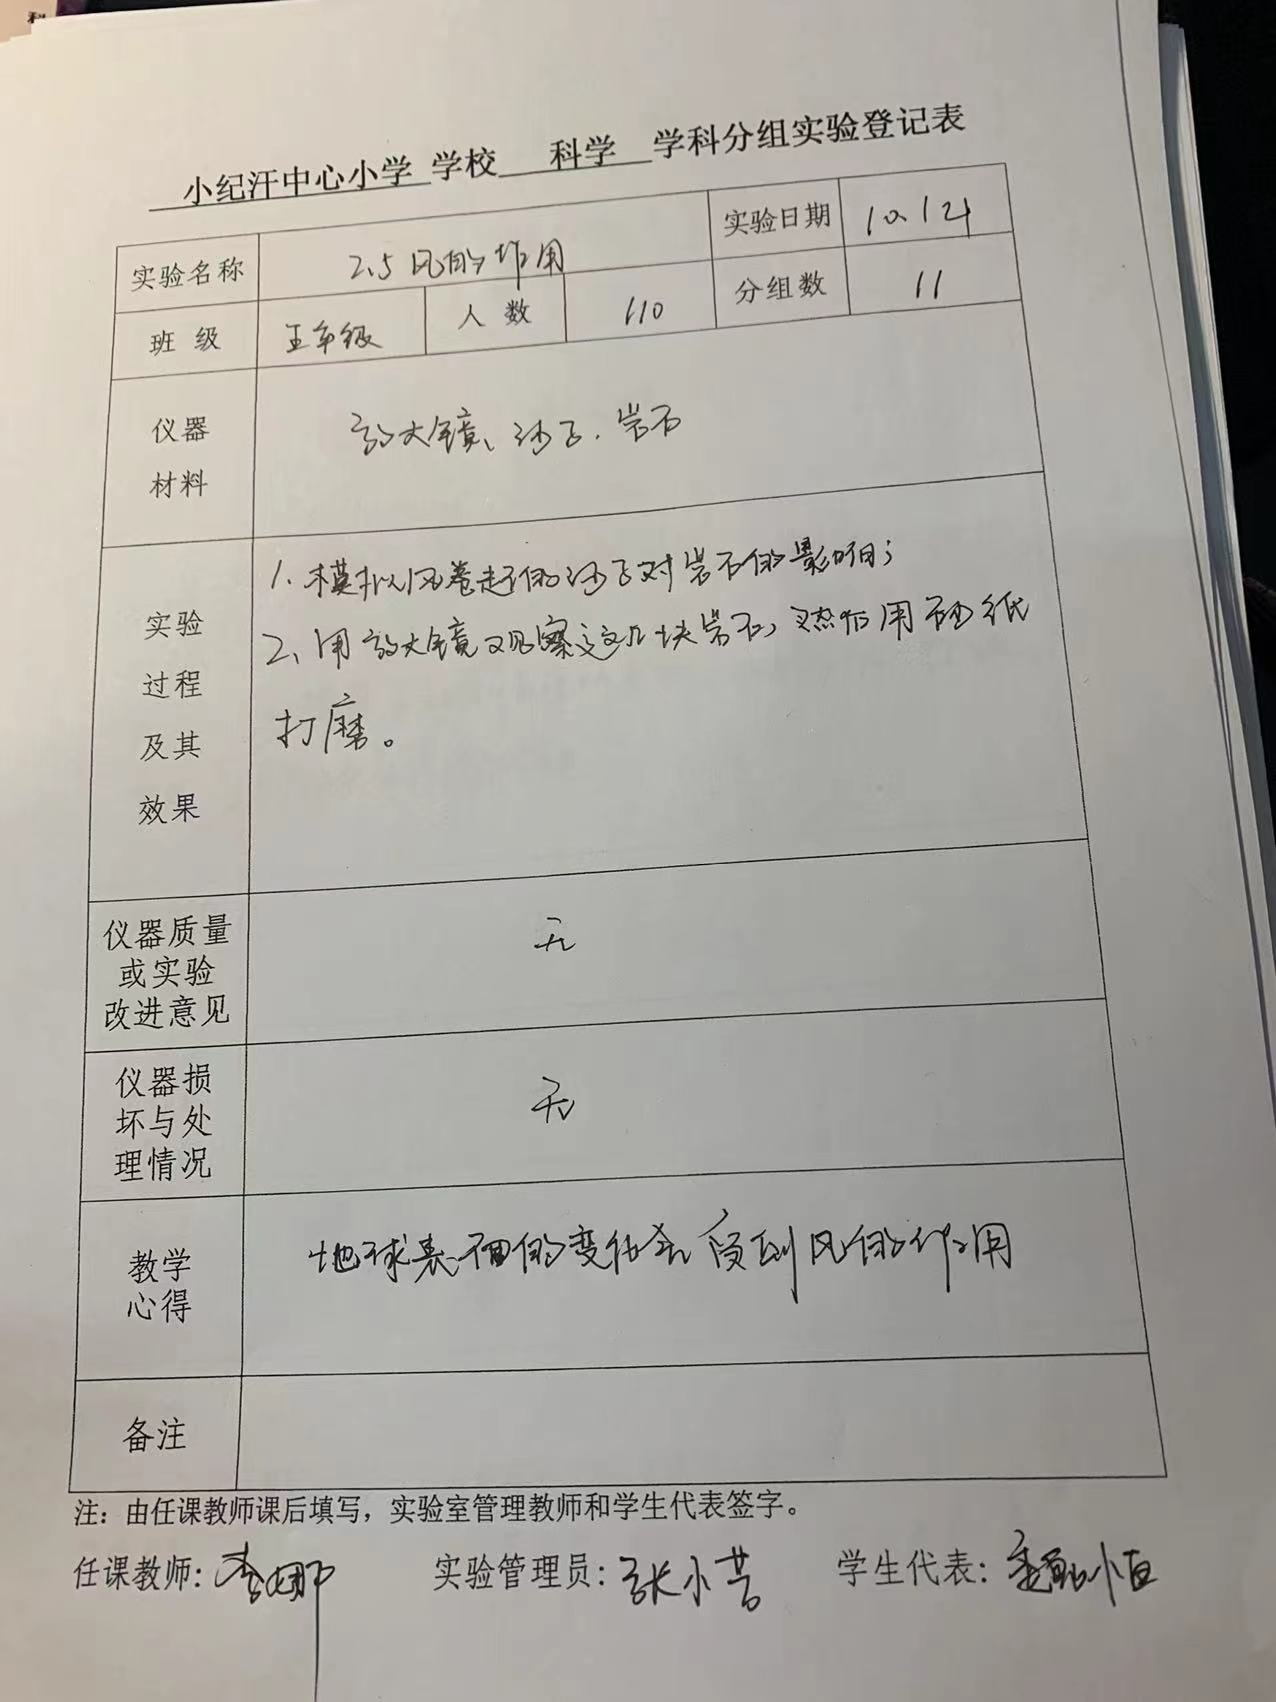 小纪汗中心小学 学校 科学 学科分组实验登记表
实验名称 2.5 风的作用 实验日期 10.124
班级 五年级 人数 110 分组数 11
仪器
材料
放大镜、沙子、岩石
实验
过程
及其
效果
1.模拟风卷起的沙子对岩石的影响；
2、用放大镜观察这几块岩石，然后用砂纸
打磨。
仪器质量
或实验
改进意见
无
仪器损
坏与处
理情况
无
教学
心得
地球表面的变化会受到风的作用
备注
注：由任课教师课后填写，实验室管理教师和学生代表签字。
任课教师：李娜 实验管理员：张小芸 学生代表：